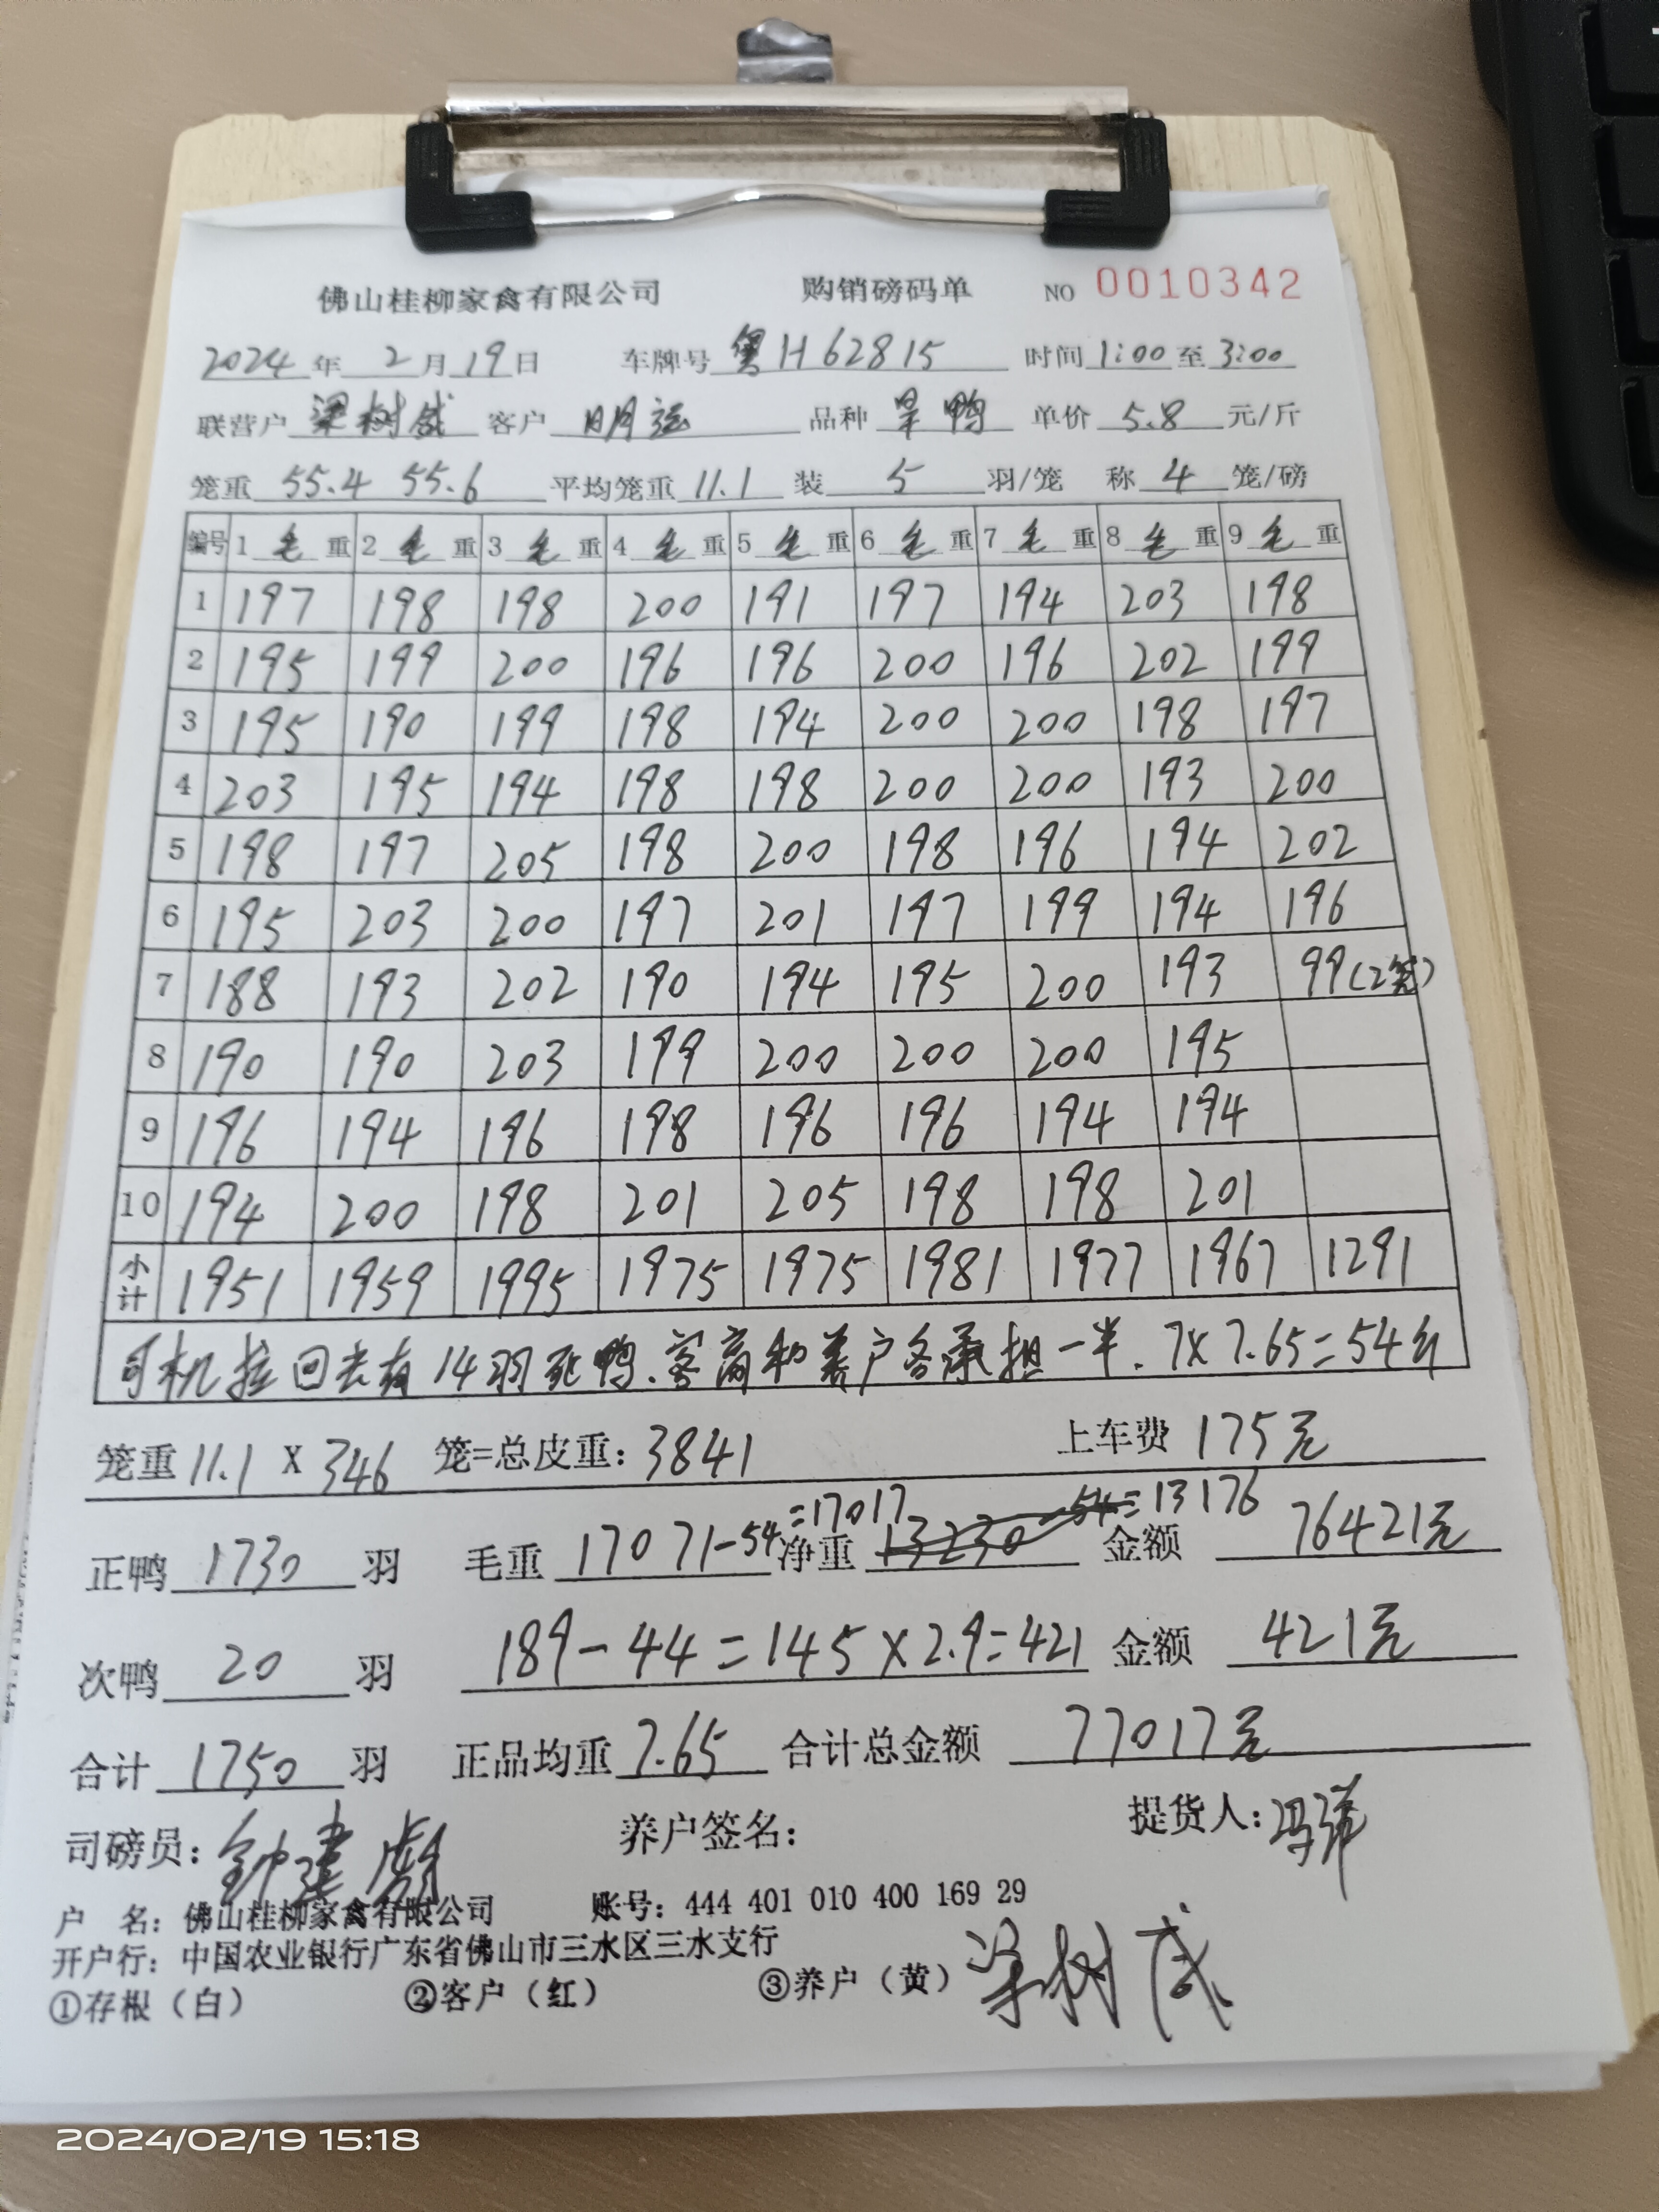 佛山桂柳家禽有限公司 购销磅码单 NO 0010342
2024年2月19日 车牌号 粤H62815 时间 1:00 至 3:00
联营户 梁树成 客户 明运 品种 旱鸭 单价 5.8 元/斤
笼重 55.4 55.6 平均笼重 11.1 装 5 羽/笼 称 4 笼/磅
编号 1 毛 重 2 毛 重 3 毛 重 4 毛 重 5 毛 重 6 毛 重 7 毛 重 8 毛 重 9 毛 重
1 197 198 198 200 191 197 194 203 198
2 195 199 200 196 196 200 196 202 199
3 195 190 199 198 194 200 200 198 197
4 203 195 194 198 198 200 200 193 200
5 198 197 205 198 200 198 196 194 202
6 195 203 200 197 201 197 199 194 196
7 188 193 202 190 194 195 200 193 99(2笼)
8 190 190 203 199 200 200 200 195
9 196 194 196 198 196 196 194 194
10 194 200 198 201 205 198 198 201
小计 1951 1959 1995 1975 1975 1981 1977 1967 1291
司机拉回去有14羽死鸭、客商和养户各承担一半. 7X7.65=54斤
笼重 11.1 X 346 笼=总皮重: 3841 上车费 175元
正鸭 1730 羽 毛重 17071-54=17017 净重 13230-54=13176 金额 76421元
次鸭 20 羽 189-44=145×2.9=421 金额 421元
合计 1750 羽 正品均重 7.65 合计总金额 77017元
司磅员: 钟建 养户签名: 提货人: 冯
户 名: 佛山桂柳家禽有限公司 账号: 444 401 010 400 169 29
开户行: 中国农业银行广东省佛山市三水区三水支行
①存根（白） ②客户（红） ③养户（黄） 梁树成
2024/02/19 15:18